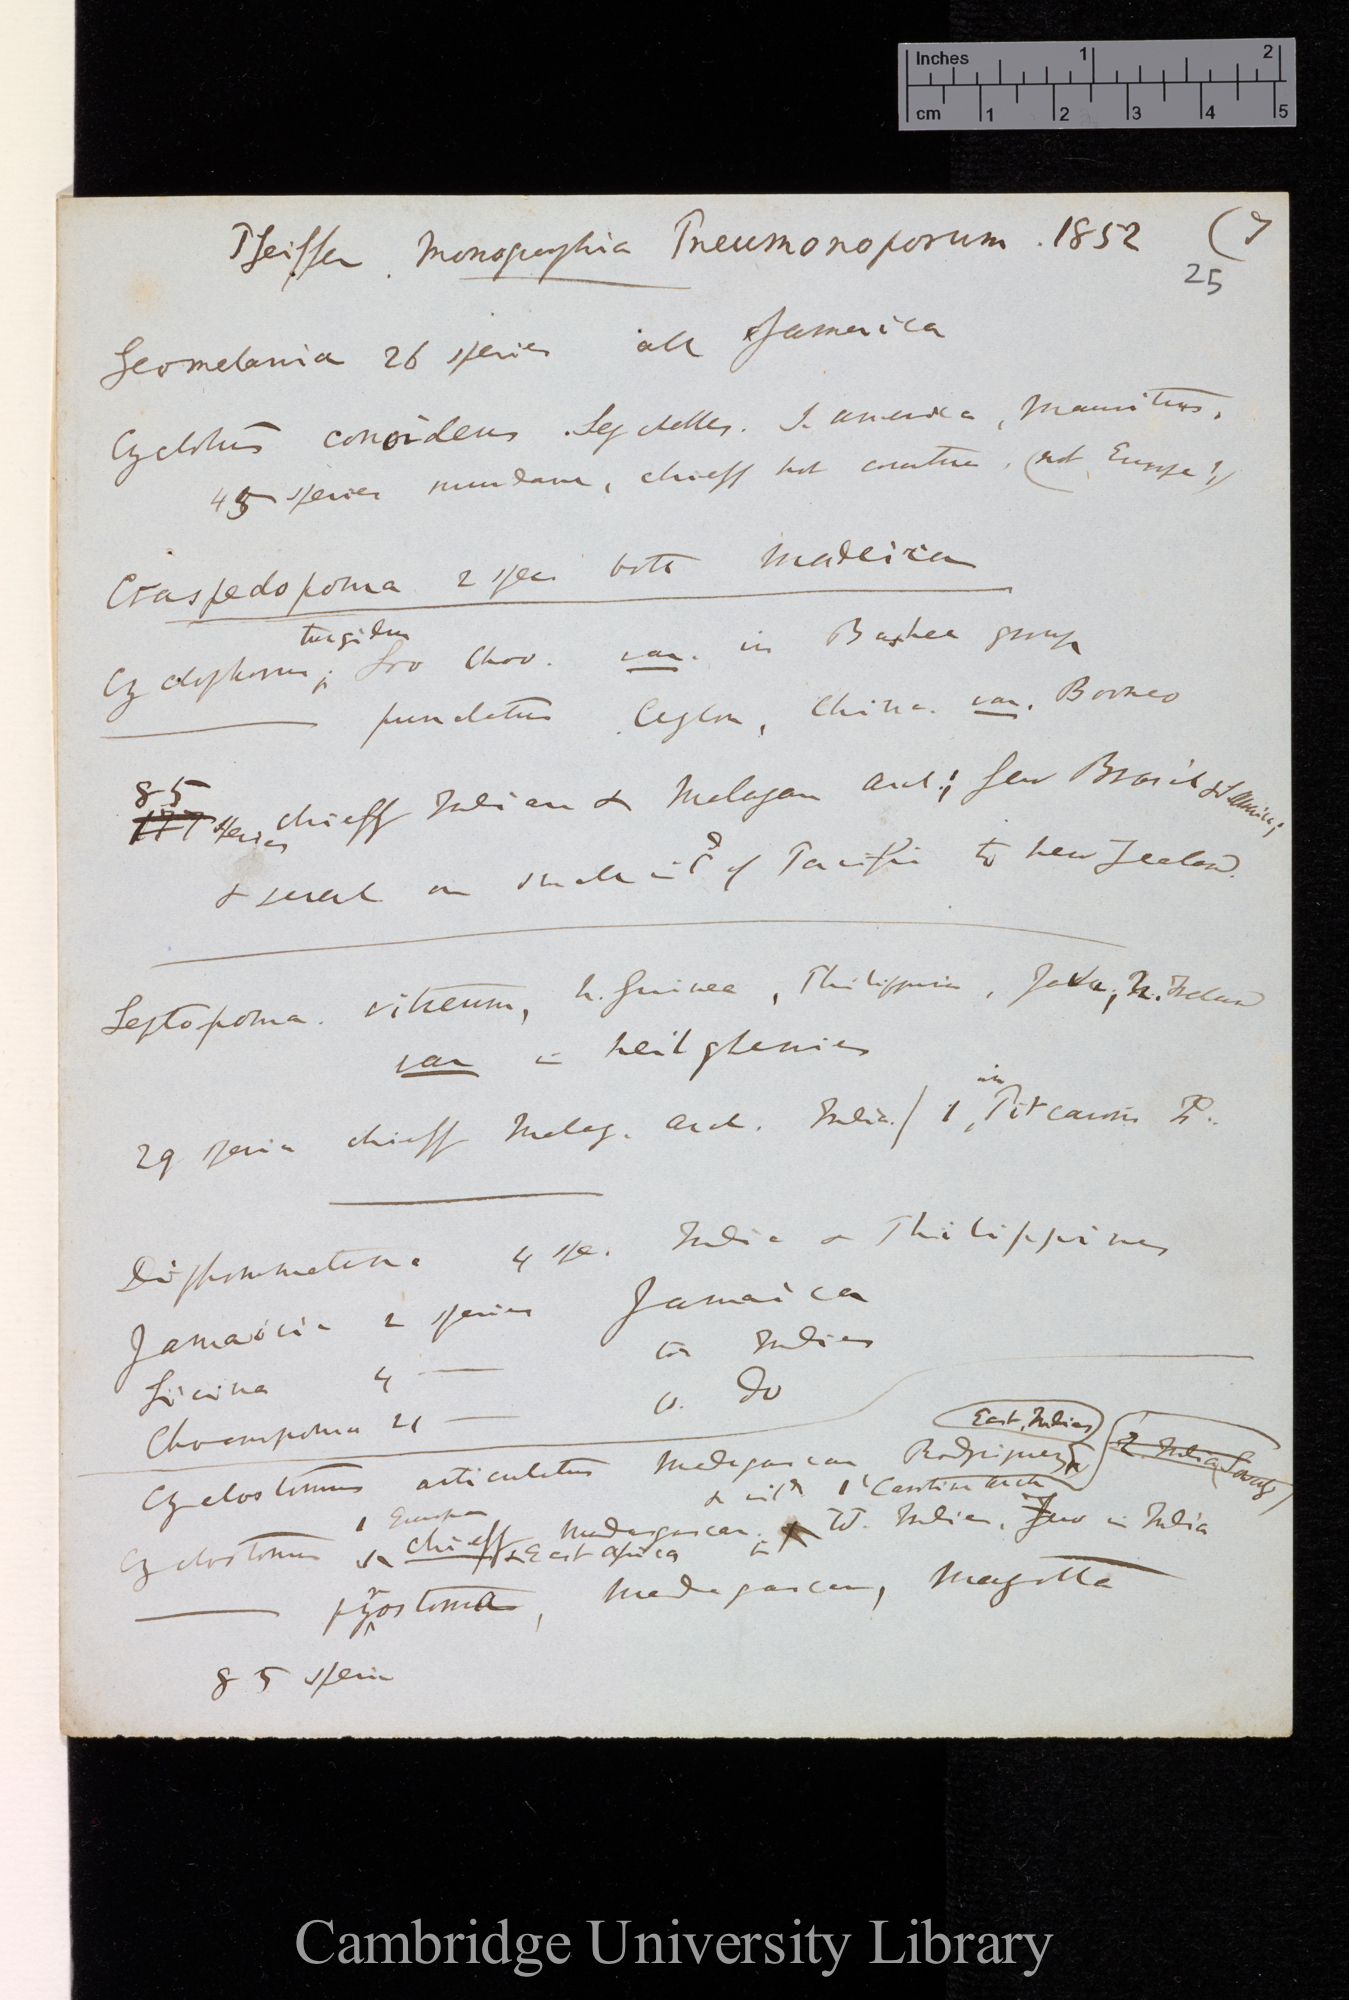 Inches 1 2
cm 1 2 3 4 5
Pfeiffer. Monographia Pneumonoporum. 1852 (7
25
Geomelania 26 species all Jamaica
Cyclotus conoideus Seychelles. S. America, Mauritius.
45 species mundane, chiefly hot countries. (not Europe!)
Craspedopoma 2 spec both Madeira
turgidus
Cyclophorus; Loo Choo. var. in Bashee group
punctatus Ceylon, China. var. Borneo
85
177 species chiefly Indian & Malayan arch.; few Brasil & S. America;
& several on small isd of Pacific to New Zealand.
Leptopoma. vitreum, N. Guinea, Philippines, Java, N. Ireland
var in
29 species chiefly Malay. arch. India / 1, in Pitcairns Isd.
Diplommatina 4 spe. India & Philippines
Jamaicia 2 species Jamaica
Licina 4 — W Indies
Choanopoma 21 — W. Do
East Indies
Cyclostomus articulatus Madagascar Rodriguez
1 Europe & with 1 Caroline arch
Cyclostomus chiefly Madagascar. & W. Indies. few in India
& East Africa in
— pyrostoma, Madagascar, Mayotta
85 species
Cambridge University Library